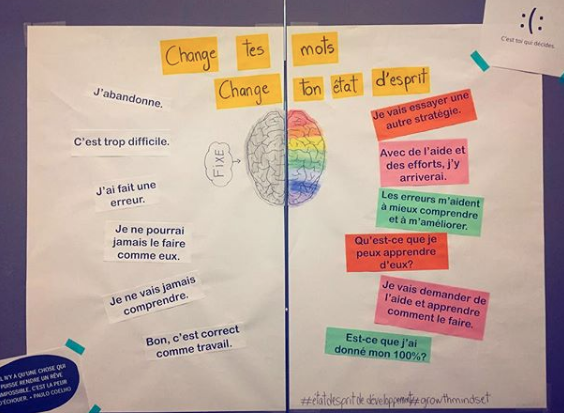 :(:
C'est toi qui décides.
Change tes mots
Change ton état d'esprit
J'abandonne.
C'est trop difficile.
FIXE
J'ai fait une
erreur.
Je ne pourrai
jamais le faire
comme eux.
Je ne vais jamais
comprendre.
Bon, c'est correct
comme travail.
Je vais essayer une
autre stratégie.
Avec de l'aide et
des efforts, j'y
arriverai.
Les erreurs m'aident
à mieux comprendre
et à m'améliorer.
Qu'est-ce que je
peux apprendre
d'eux?
Je vais demander de
l'aide et apprendre
comment le faire.
Est-ce que j'ai
donné mon 100%?
#étatdespritdedéveloppement #growthmindset
IL N'Y A QU'UNE CHOSE QUI
PUISSE RENDRE UN RÊVE
IMPOSSIBLE, C'EST LA PEUR
D'ÉCHOUER. • PAULO COELHO